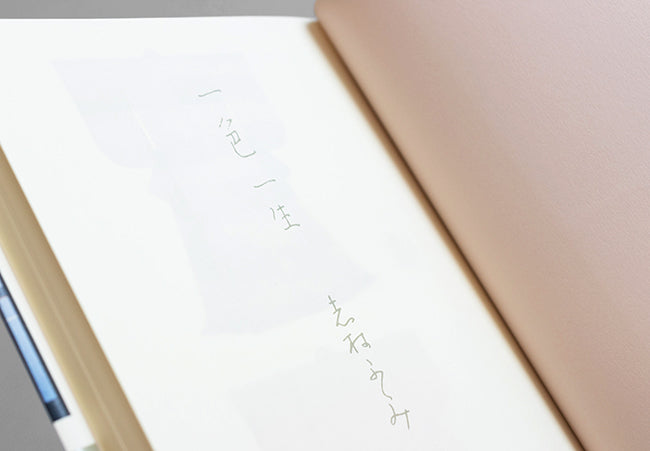 一色一生
志村ふくみ